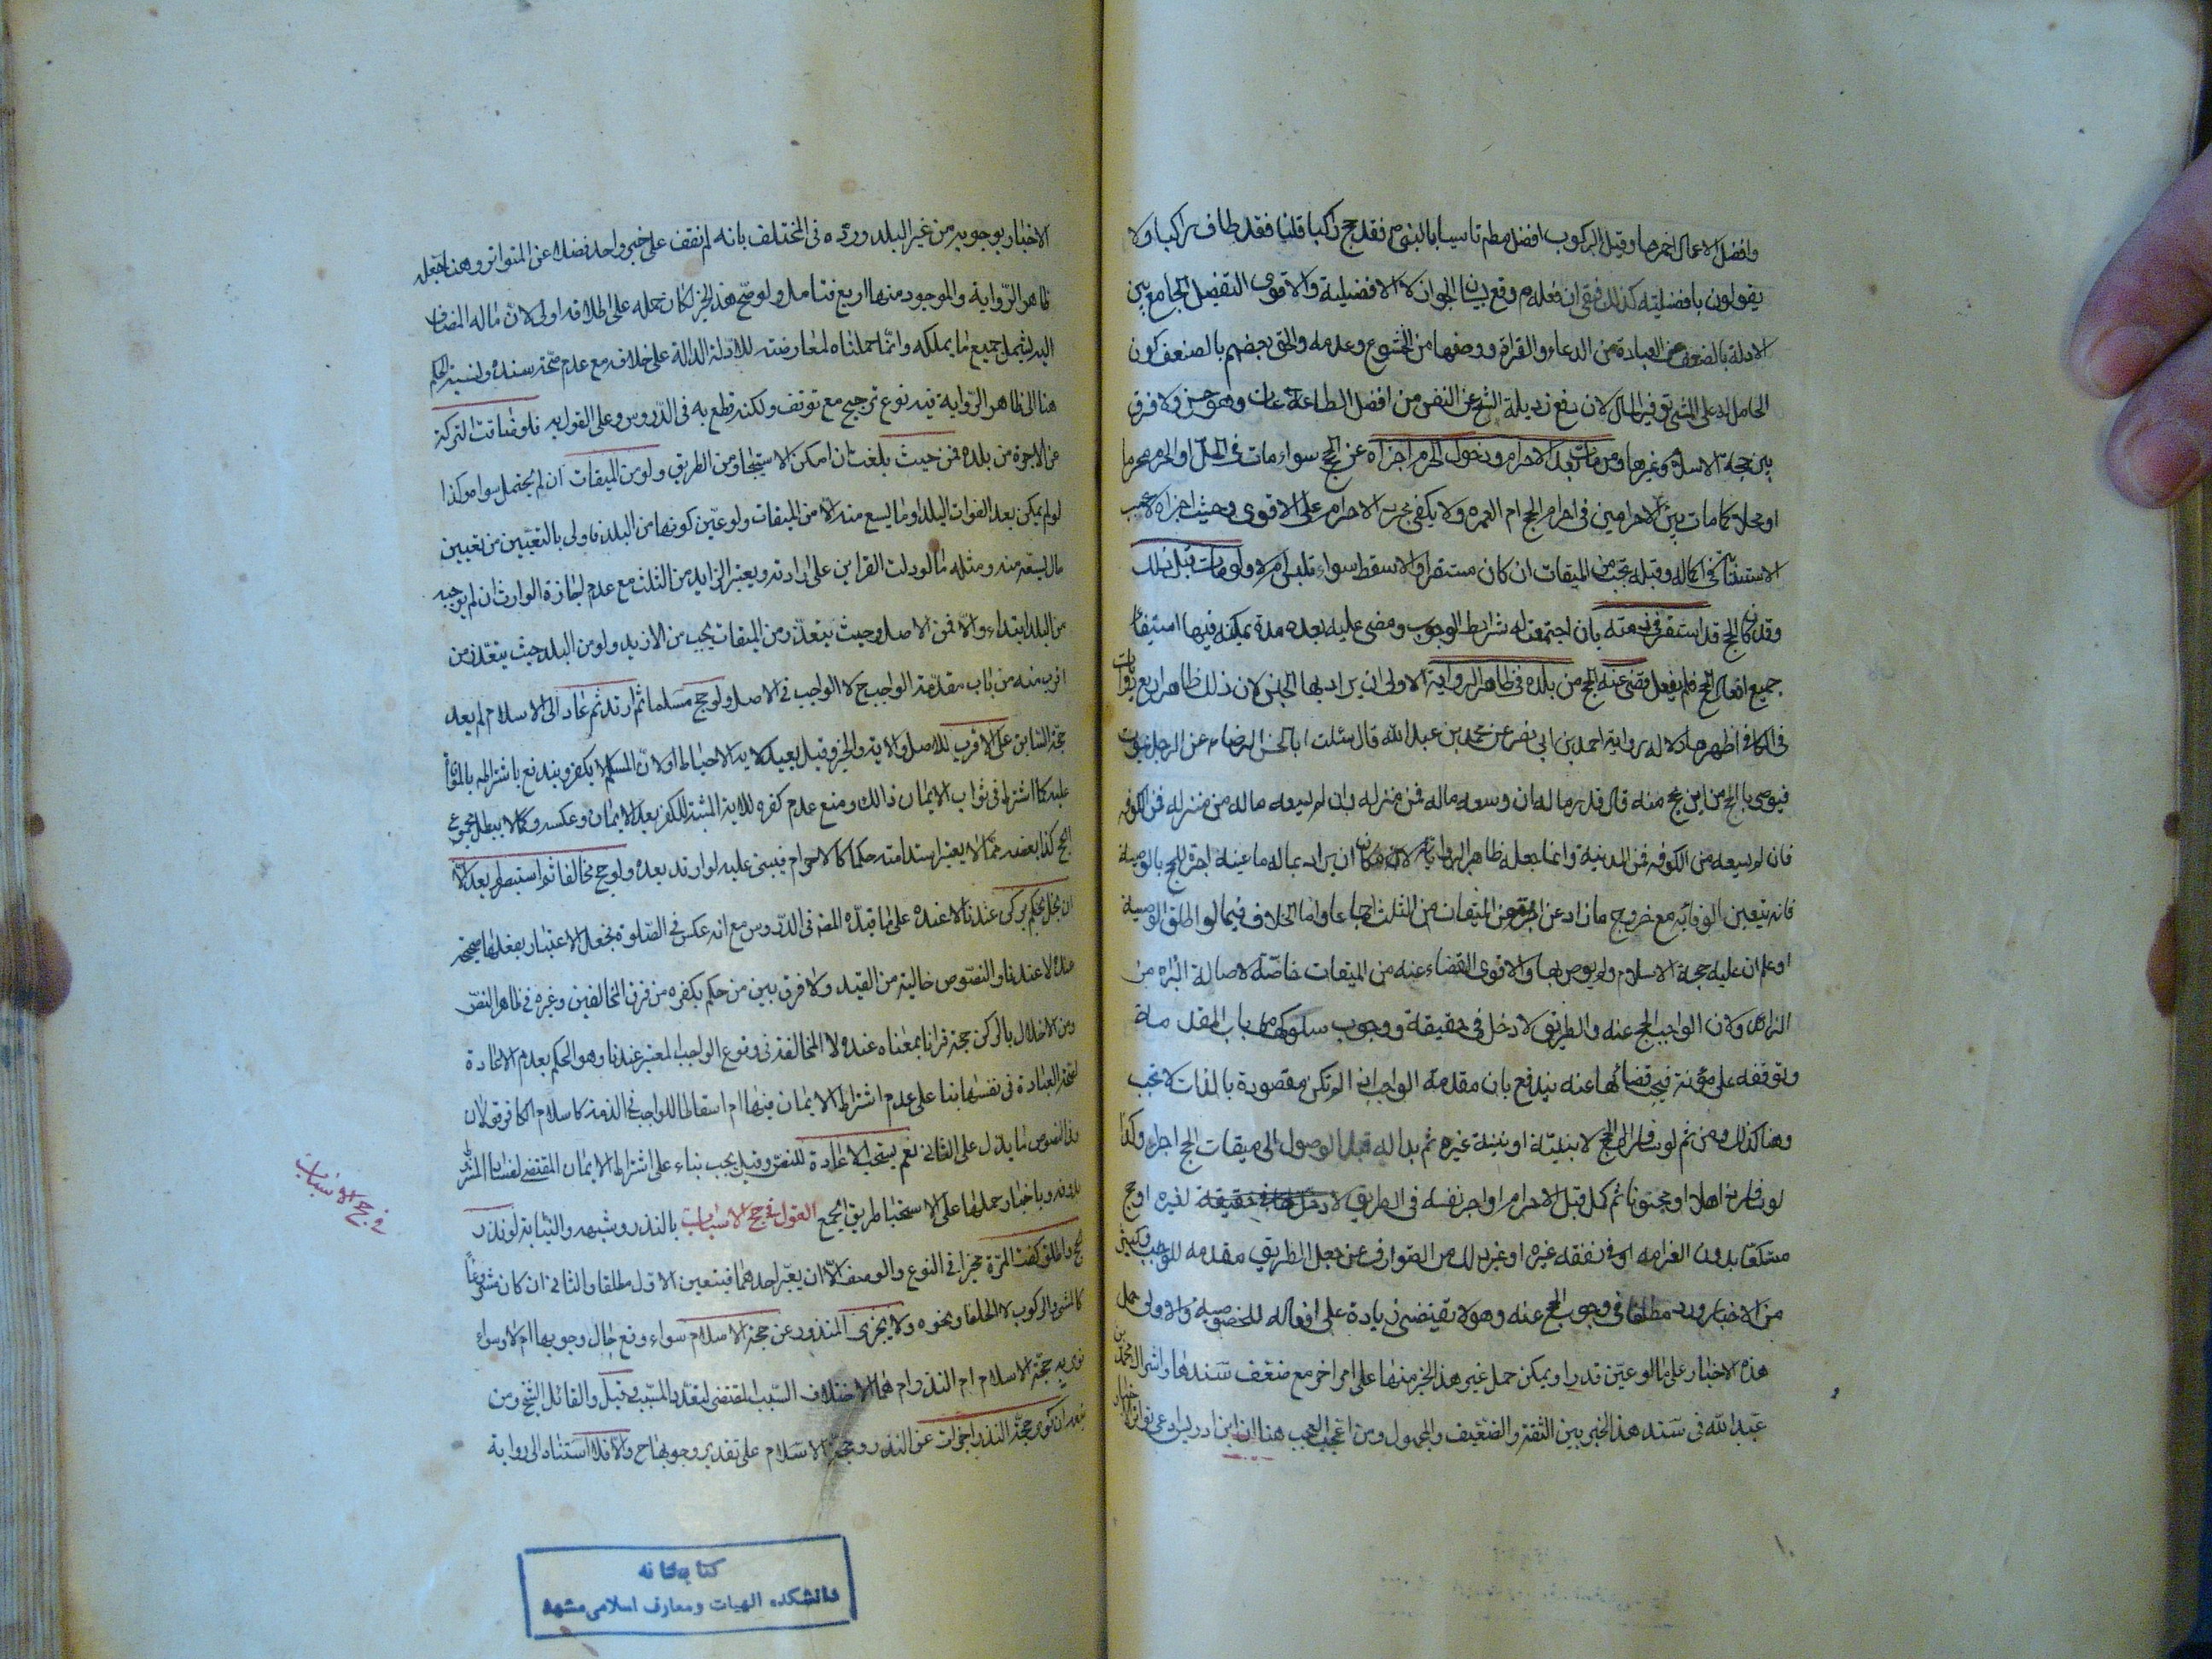 وافضل الاعمال احمزها وقيل الركوب افضل مطم تاسيا بالنبي ص فقد حج راكبا قلنا فقد طاف راكبا ولا
يقولون بافضليته كذلك فبقي ان فعله ص وقع لبيان الجواز لا الافضلية والاقوى التفصيل الجامع بين
الادلة بالضعف عن العبادة من الدعاء والقراءة ووصفها من الخشوع وعدمه والحق بعضهم بالضعف كون
الحامل له على المشي توفير المال لان دفع رذيلة الشح عن النفس من افضل الطاعات وهو حسن ولا فرق
بين حجة الاسلام وغيرها ومن مات بعد الاحرام ودخول الحرم اجزاه عن الحج سواء مات في الحل او الحرم محرما
او محلا كما مات بين الاحرامين في احرام الحج ام العمره ولا يكفي مجرد الاحرام على الاقوى وحيث اجزاه لا يجب
الاستنابة في اكماله وقبله يجب من الميقات ان كان مستقرا والا سقط سواء تلبس ام لا ولو مات قبل ذلك
وقد كان الحج قد استقر في ذمته بان اجتمعت له شرايط الوجوب ومضى عليه بعده مدة يمكنه فيها استيفاء
جميع افعال الحج فلم يفعل قضى عنه الحج من بلده في ظاهر الرواية الاولى ان يراد بها الجنس لان ذلك ظاهر اربع روايات
في الكافي اظهرها دلاله رواية احمد بن ابي نصر عن محمد بن عبد الله قال سئلت ابا الحسن الرضاء عن الرجل يموت
فيوصي بالحج من اين يحج منه قال قدر ماله ان وسعه ماله فمن منزله وان لم يسعه ماله من منزله فمن الكوفه
فان لم يسعه من الكوفه فمن المدينة وانما جعله ظاهر الرواية لامكان ان يراد بماله ما عينه اجرة للحج بالوصية
فانه يتعين الوفاء به مع خروج ما زاد عن اجرته من الميقات من الثلث اجماعا وانما الخلاف فيما لو اطلق الوصية
او علم ان عليه حجة الاسلام ولم يوص بها والاقوى القضاء عنه من الميقات خاصة لاصالة البراءه من
الزائد ولان الواجب الحج عنه والطريق لا دخل في حقيقة ووجوب سلوكها من باب المقدمة
وتوقفه على مؤنة فيجب قضائها عنه يندفع بان مقدمة الواجب اذا لم تكن مقصودة بالذات لا تجب
وهنا كذلك ومن ثم لو سافر الى الحج لا بنيته او بنية غيره ثم بدا له قبل الوصول الى ميقات الحج اجزاه وكذا
لو سافر ذاهلا او مجنونا ثم كمل قبل الاحرام او اجر نفسه في الطريق لا دخل لها في حقيقة لغيره او حج
متسكعا بدون الغرامه او في نفقه غيره او غير ذلك من الصوارف عن جعل الطريق مقدمه للواجب وكثير
من الاخبار ورد مطلقا في وجوب الحج عنه وهو لا يقتضي زيادة على افعاله للخصوصية والاولى حمل
هذه الاخبار على ما لو عين قدرا ويمكن حمل غير هذا الخبر منها على امر اخر مع ضعف سندها واشتراك محمد بن
عبد الله في سند هذا الخبر بين الثقة والضعيف والمجهول ومن اعجب العجب هنا ان ابن ادريس ادعى تواتر الاخبار
الاخبار بوجوبه من غير البلد ورده في المختلف بانه لم نقف على خبر واحد فضلا عن المتواتر وهنا جعله
ظاهر الرواية والموجود منها اربع فتامل ولو صح هذا الخبر لكان حمله على اطلاقه اولى لان ماله المضاف
اليه يشمل جميع ما يملكه وانما حملناه لمعارضته للادلة الدالة على خلافه مع عدم صحة سنده ونسبة الحكم
هنا الى ظاهر الرواية فيه نوع ترجيح مع توقف ولكنه قطع به في الدروس وعلى القول به فلو ضاقت التركة
عن الاجرة من بلده فمن حيث بلغت ان امكن الاستيجار من الطريق ولو من الميقات ان لم يحتمل سواه وكذا
لو لم يمكن بعد الفوات البلد او ما يسع منه الا من الميقات ولو عين كونها من البلد فاولى بالتعيين من تعيين
مال يسعه منه ومثله ما لو دلت القراين على ارادته ويعتبر الزايد من الثلث مع عدم اجازة الوارث ان لم نوجبه
من البلد ابتداء والا فمن الاصل وحيث يتعذر من الميقات يجب من الازيد ولو من البلد حيث يتعذر من
اقرب منه من باب مقدمة الواجب ح لا الواجب في الاصل ولو حج مسلما ثم ارتد ثم عاد الى الاسلام لم يعد
حجة السابق على الاقرب للاصل والاية والخبر وقيل يعيد لاية الاحباط او لان المسلم لا يكفر ويندفع باشتراطه بالموافاة
عليه كما اشترط في ثواب الايمان ذلك ومنع عدم كفره للاية المثبتة للكفر بعد الايمان وعكسه وكما لا يبطل مجموع
الحج كذا بعضه مما لا يعتبر استدامته حكما كالاحرام فيبنى عليه لو ارتد بعده ولو حج مخالفا ثم استبصر لم يعد الا
ان يخل بحكم بركن عندنا لا عنده على ما قيده المصـ في الدروس مع انه عكس في الصلوة فجعل الاعتبار بفعلها صحيحة
عنده لا عندنا والنصوص خالية من القيد ولا فرق بين من حكم بكفره من فرق المخالفين وغيره في ظاهر النص
ومن الاخلال بالركن حجة قرانا بمعناه عنده لا المخالفة في نوع الواجب المعتبر عندنا وهو الحكم بعدم الاعادة
لصحة العبادة في نفسها بناء على عدم اشتراط الايمان فيها ام اسقاطا للواجب في الذمة كاسلام الكافر قولان
وفي النصوص ما يدل على الثاني نعم يستحب الاعادة للنص وقيل يجب بناء على اشتراط الايمان المقتضي لفساد المشروط
بدونه وباخبار حملها على الاستحباب طريق الجمع القول في حج الاسباب بالنذر وشبهه والنيابة لو نذر
الحج واطلق كفت المرة مخيرا في النوع والوصف الا ان يعين احدهما فيتعين الاول مطلقا والثاني ان كان مشروعا
كالمشي والركوب لا الحفا ونحوه ولا يجزي المنذور عن حجة الاسلام سواء وقع حال وجوبها ام لا وسواء
نوى به حجة الاسلام ام النذر ام هما لاختلاف السبب المقتضي لتعدد المسبب وقيل والقائل الشيخ ومن
تبعه ان نوى حجة النذر اجزات عن النذر وحجة الاسلام على تقدير وجوبها ح والا فلا استنادا الى رواية
في حج الاسباب
کتابخانه
دانشکده الهیات ومعارف اسلامی مشهد